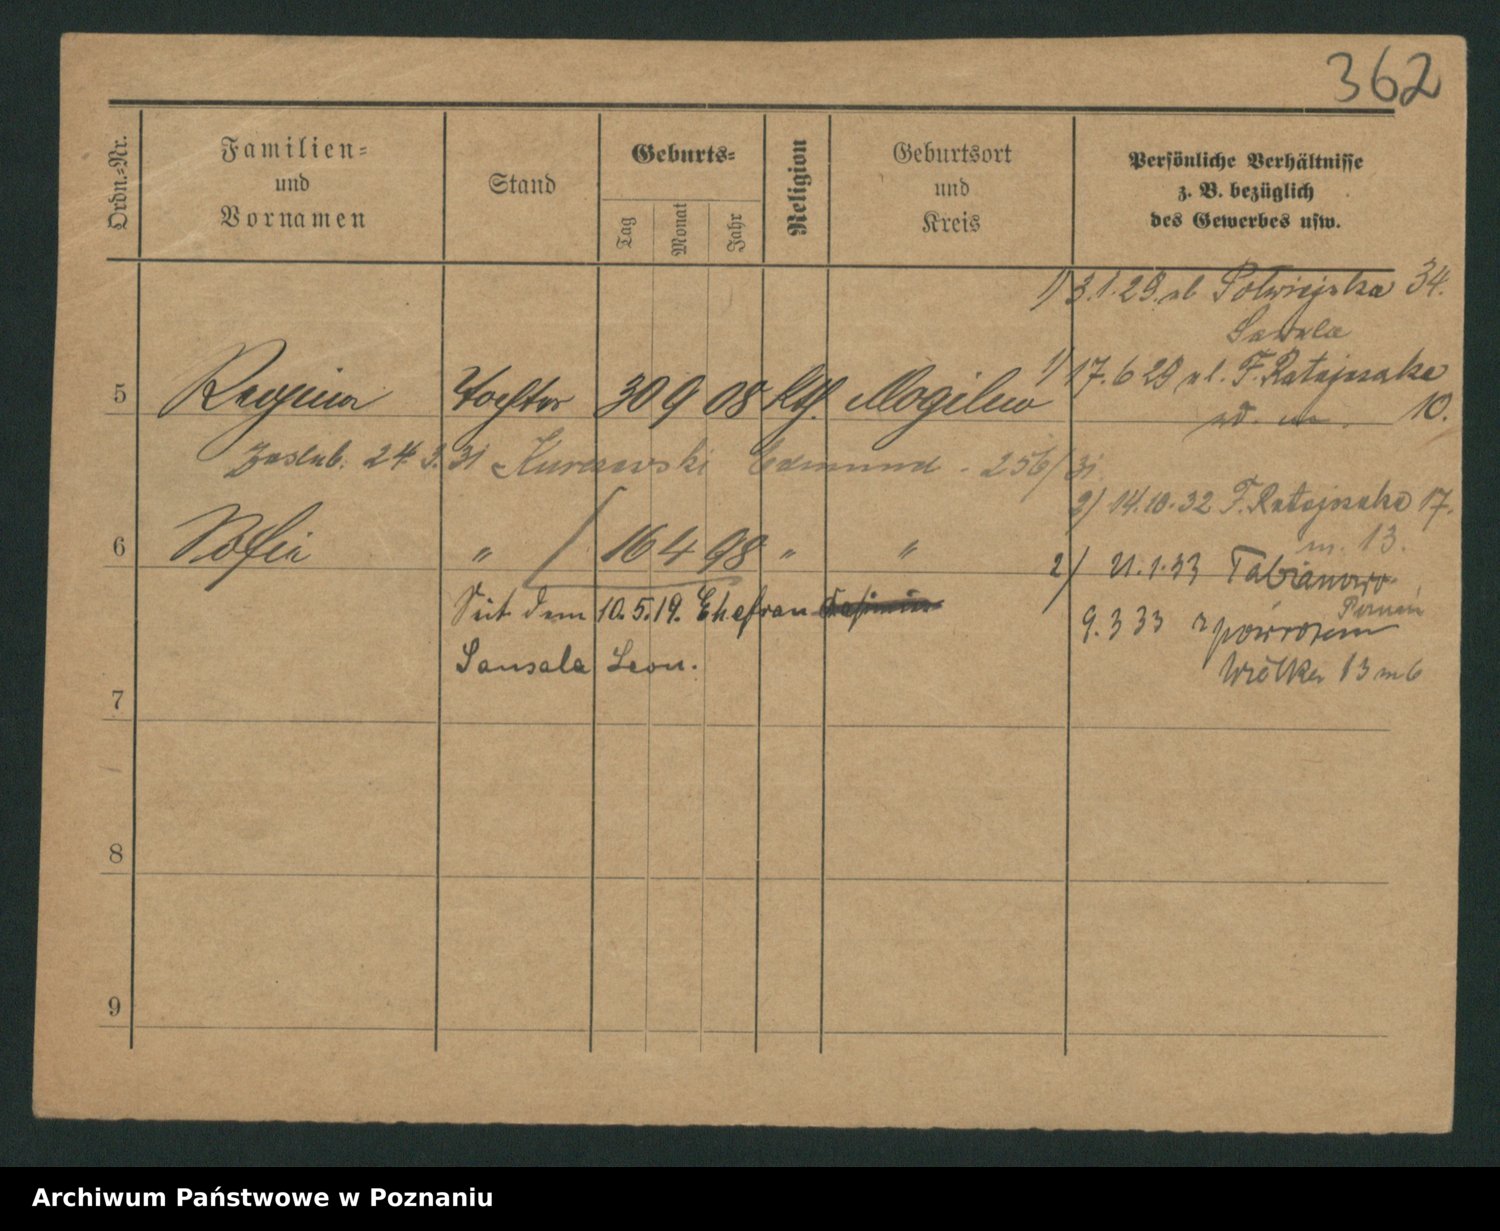 362
Ordn.-Nr.
Familien-
und
Vornamen
Stand
Geburts-
Tag
Monat
Jahr
Religion
Geburtsort
und
Kreis
Persönliche Verhältnisse
z. B. bezüglich
des Gewerbes usw.
1) 3.1.29. ul Półwiejska 34.
1) 17.6 29 ul. F. Ratajczaka
5 Regina Tochter 30 9 08 kth. Mogilno 10.
Zaślub. 24.3.31 Kurczewski Edmund - 256/31.
2) 14.10.32 F. Ratajczaka 17.
m. 13.
6 Sofia " 16 4 98 " "
2) 21.1.33 Fabianowo
Seit dem 10.5.19. Ehefrau
Poznań
9.3 33 z powrotem
Sansala Leon.
13 m 6
7
8
9
Archiwum Państwowe w Poznaniu